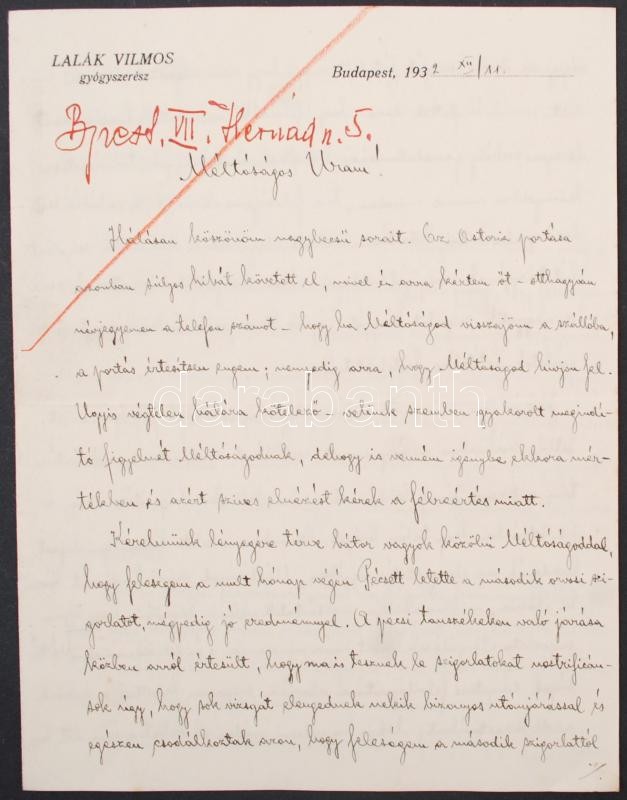 LALÁK VILMOS
gyógyszerész
Budapest, 1932 XII/11.
Bpest. VII. Hernád u. 5.
Méltóságos Uram!
Hálásan köszönöm nagybecsű sorait. Az Astoria portása
azonban súlyos hibát követett el, mivel én arra kértem őt - otthagyván
névjegyemen a telefon számot - hogy ha Méltóságod visszajönn a szállóba,
a portás értesítsen engem; nempedig arra, hogy Méltóságod hívjon fel.
Ugyis végtelen hálára kötelező - velünk szemben gyakorolt megindí-
tó figyelmét Méltóságodnak, dehogy is venném igénybe ekkora mér-
tékben és azért szives elnézést kérek a félreértés miatt.
Kérelmünk lényegére térve bátor vagyok közölni Méltóságoddal,
hogy feleségem a mult hónap végén Pécsett letette a második orvosi szi-
gorlatot, mégpedig jó eredménnyel. A pécsi tanszékeken való járása
közben arról értesült, hogy ma is tesznek le szigorlatokat nostrificán-
sok úgy, hogy sok vizsgát elengednek nekik bizonyos utánjárással és
egészen csodálkoztak azon, hogy feleségem a második szigorlattól
darabanth